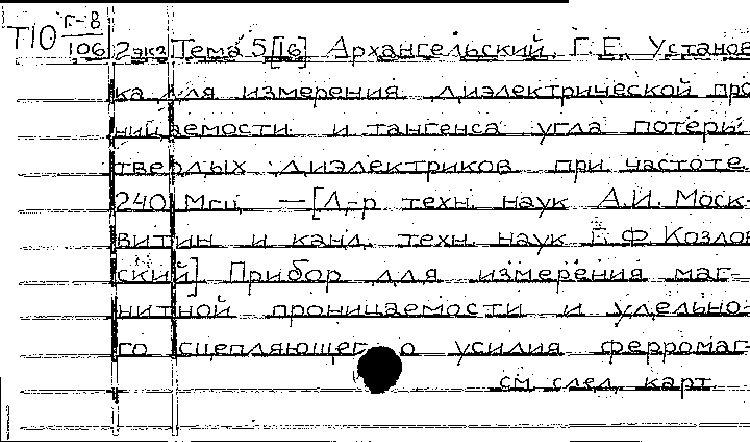 Т10 Г-8
106 2экз Тема 5[16] Архангельский, Г.Е. Установ
ка для измерения диэлектрической про
ницаемости и тангенса угла потерь
твердых диэлектриков при частоте
240 Мгц. —[Д-р техн. наук А.И. Моск-
витин и канд. техн. наук В.Ф. Козлов
ский] Прибор для измерения маг-
нитной проницаемости и удельно-
го сцепляющего усилия ферромаг-
см. след. карт.